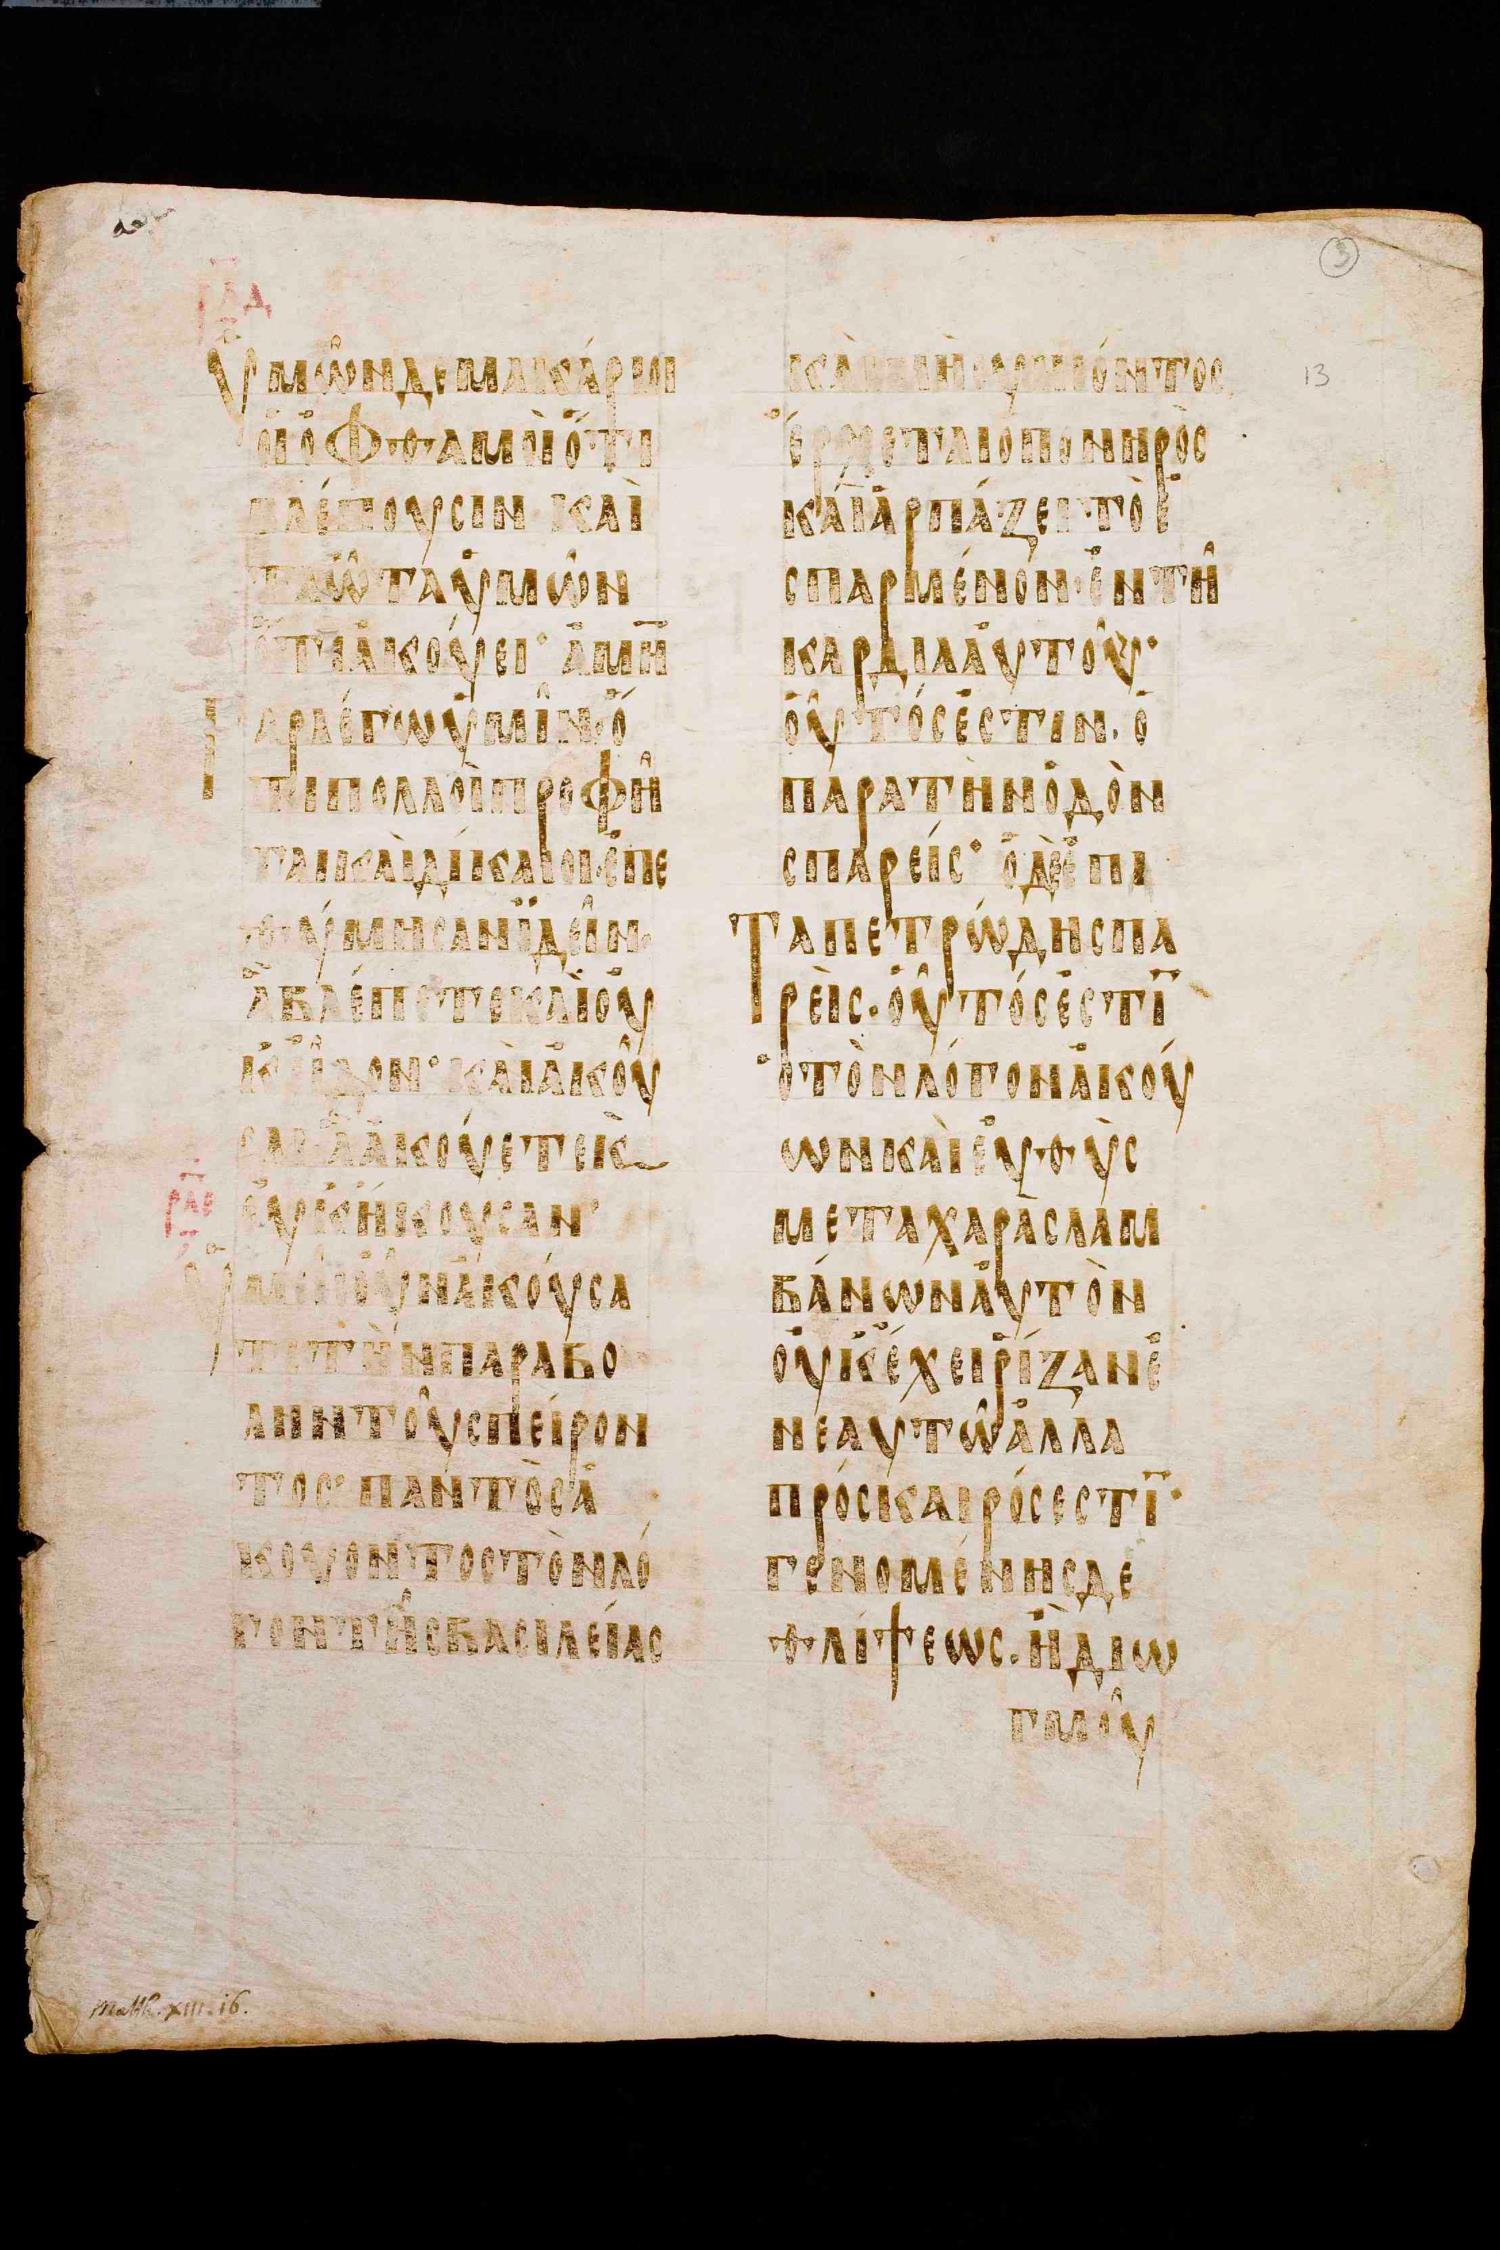 ③
13
ρλδ
Ὑμῶν δὲ μακάριοι
οἱ ὀφθαλμοὶ ὅτι
βλέπουσιν καὶ
τὰ ὦτα ὑμῶν
ὅτι ἀκούει· ἀμη̄
Γαρ λέγω ὑμῖν· ὅ
τι πολλοὶ προφῆ
ται καὶ δίκαιοι ἐπε
θύμησαν ἰδεῖν·
ἃ βλέπετε καὶ οὐ
κ εἶδον· καὶ ἀκοῦ
σαι ἃ ἀκούετε κ̀
οὐκ ἤκουσαν·
ρλε
Ὑμεῖς οὖν ἀκούσα
τε τὴν παραβο
λην τοῦ σπείρον
τος· παντὸς ἀ
κούοντος τὸν λό
γον τῆς βασιλείας
καὶ μὴ συνιόντος
ἔρχεται ὁ πονηρὸς
καὶ ἁρπάζει· τὸ ἐ
σπαρμένον· ἐν τῆ
καρδία αὐτοῦ·
οὗτός ἐστιν· ὁ
παρα τὴν ὁδὸν
σπαρείς· ὁ δὲ ἐπι
Τα πετρώδη σπα
ρεὶς· οὗτός ἐστῑ
ὁ τὸν λόγον ἀκού
ων καὶ εὐθὺς
μετα χαρὰς λαμ
βάνων αὐτὸν
οὐκ έχει ρίζαν ἐ
ν εαυτῶ ἀλλα
πρόσκαιρός εστῑ·
γενομένης δε
θλίψεως· ἢ διω
γμοῦ
Matth. XIII. 16.